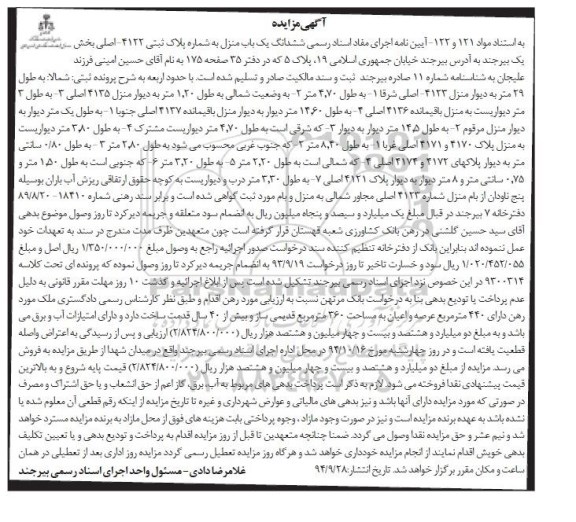 آگهی مزایده
به استناد مواد ۱۲۱ و ۱۲۲- آیین نامه اجرای مفاد اسناد رسمی ششدانگ یک باب منزل به شماره پلاک ثبتی ۴۱۲۲- اصلی بخش
یک بیرجند به آدرس بیرجند خیابان جمهوری اسلامی ۱۹، پلاک ۵ که در دفتر ۳۵ صفحه ۱۷۵ به نام آقای حسین امینی فرزند
علیجان به شناسنامه شماره ۱۱ صادره بیرجند ثبت و سند مالکیت صادر و تسلیم شده است. با حدود اربعه به شرح پرونده ثبتی: شمالا: به طول
۲۹ متر به دیوار منزل ۴۱۲۳- اصلی شرقا ۱- به طول ۴،۷۰ متر ۲- به وضعیت شمالی به طول ۱،۲۰ متر به دیوار منزل ۴۱۳۵ اصلی ۳- به طول ۳
متر دیواریست به منزل باقیمانده ۴۱۳۶ اصلی ۴- به طول ۱۴،۶۰ متر دیوار به دیوار منزل باقیمانده ۴۱۳۷ اصلی جنوبا ۱- به طول یک متر دیوار به
دیوار منزل مرقوم ۲- به طول ۱۴،۵ متر دیوار به دیوار ۳- که شرقی است به طول ۴،۷۰ متر دیواریست مشترک ۴- به طول ۳،۸۰ متر دیواریست
به منزل پلاک ۴۱۷۰ و ۴۱۷۱ اصلی غربا ۱- به طول ۸،۴۰ متر ۲- که جنوب غربی محسوب می شود به طول ۲،۸۰ متر ۳- به طول ۰/۸۰ سانتی
متر به دیوار پلاکهای ۴۱۷۲ و ۴۱۷۴ اصلی ۴- که شمالی است به طول ۲،۲۰ متر ۵- به طول ۳،۲۰ ۶- که جنوبی است به طول ۱،۵۰ متر و
۰،۷۵ سانتی متر و ۸ متر دیوار به دیوار پلاک ۴۱۲۱ اصلی ۷- به طول ۳،۳۰ متر درب و دیواریست به کوچه حقوق ارتفاقی ریزش آب باران بوسیله
پنج ناودان از بام منزل شماره ۴۱۲۳ اصلی مجاور شمالی به منزل و بام مورد ثبت گواهی شده است و برابر سند رهنی شماره ۱۸۴۱۰- ۸۹/۸/۲۰
دفترخانه ۷ بیرجند در قبال مبلغ یک میلیارد و سیصد و پنجاه میلیون ریال به انضمام سود متعلقه و جریمه دیر کرد تا روز وصول موضوع بدهی
آقای سید حسین گلشنی در رهن بانک کشاورزی شعبه قهستان قرار گرفته است چون متعهدین ظرف مدت مندرج در سند به تعهدات خود
عمل ننموده اند بنابراین بانک از دفترخانه تنظیم کننده سند درخواست صدور اجرائیه راجع به وصول مبلغ ۱/۳۵۰/۰۰۰/۰۰۰ ریال اصل و مبلغ
۱/۰۲۰/۴۵۲/۰۵۵ ریال سود و خسارت تاخیر تا روز درخواست ۹۳/۹/۱۹ به انضمام جریمه دیر کرد تا روز وصول نموده که پرونده ای تحت کلاسه
۹۳۰۰۳۱۴ در این خصوص نزد اجرای اسناد رسمی بیرجند تشکیل شده است پس از ابلاغ اجرائیه و گذشت ۱۰ روز مهلت مقرر قانونی به دلیل
عدم پرداخت یا تودیع بدهی بنا به درخواست بانک مرتهن نسبت به ارزیابی مورد رهن اقدام و طبق نظر کارشناس رسمی دادگستری ملک مورد
رهن دارای ۴۴۰ مترمربع عرصه و اعیان به مساحت ۳۶۰ مترمربع قدیمی ساز و بیش از ۴۰ سال قدمت ساخت دارد و دارای امتیازات آب و برق می
باشد و به مبلغ دو میلیارد و هشتصد و بیست و چهار میلیون و هشتصد هزار ریال (۲/۸۲۴/۸۰۰/۰۰۰) ارزیابی و پس از رسیدگی به اعتراض واصله
قطعیت یافته است و در روز چهارشنبه مورخ ۹۴/۱۰/۱۶ در محل اداره اجرای اسناد رسمی بیرجند واقع در میدان شهدا از طریق مزایده به فروش
می رسد. مزایده از مبلغ دو میلیارد و هشتصد و بیست و چهار میلیون و هشتصد هزار ریال (۲/۸۲۴/۸۰۰/۰۰۰) قیمت پایه شروع و به بالاترین
قیمت پیشنهادی نقدا فروخته می شود. لازم به ذکر است پرداخت بدهی های مربوط به آب، برق، گاز اعم از حق انشعاب و یا حق اشتراک و مصرف
در صورتی که مورد مزایده دارای آنها باشد و نیز بدهی های مالیاتی و عوارض شهرداری و غیره تا تاریخ مزایده از اینکه رقم قطعی آن معلوم شده یا
نشده باشد به عهده برنده مزایده است و نیز در صورت وجود مازاد، وجوه پرداختی بابت هزینه های فوق از محل مازاد به برنده مزایده مسترد خواهد
شد و نیم عشر و حق مزایده نقدا وصول می گردد. ضمنا چنانچه متعهدین تا قبل از روز مزایده اقدام به پرداخت و تودیع بدهی و یا تعیین تکلیف
بدهی خویش اقدام نمایند از انجام مزایده خودداری خواهد شد و هر گاه روز مزایده تعطیل رسمی گردد مزایده روز اداری بعد از تعطیلی در همان
ساعت و مکان مقرر برگزار خواهد شد. تاریخ انتشار: ۹۴/۹/۲۸
غلامرضا دادی - مسئول واحد اجرای اسناد رسمی بیرجند